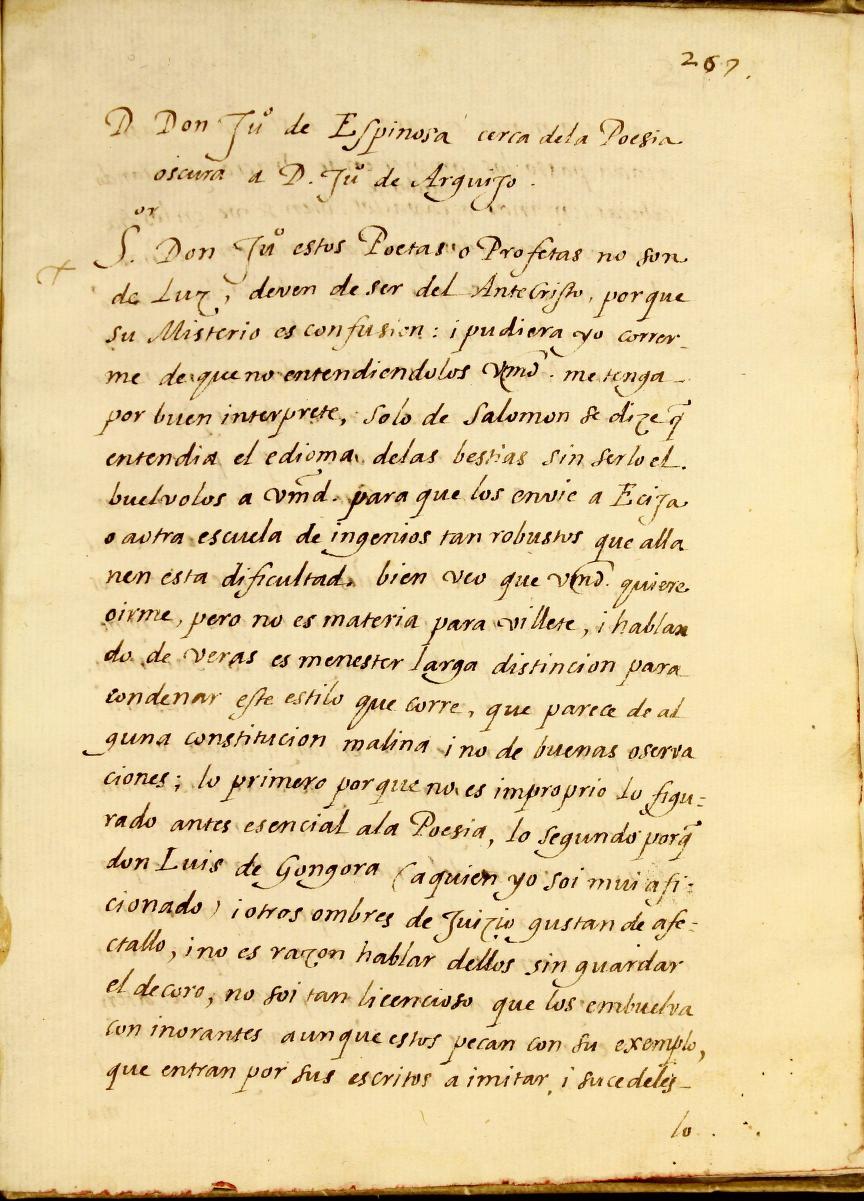 267.
D Don Juº de Espinosa cerca dela Poesia
oscura a D. Juº de Arguijo.
S.or Don Juº estos Poetas o Profetas no son
de Luz, deven de ser del AnteCristo, porque
su Misterio es confusion: i pudiera yo correr-
me de que no entendiendolos vmd. me tenga
por buen interprete, solo de Salomon se dize q̃
entendia el edioma delas bestias sin serlo el.
buelvolos a vmd. para que los envie a Ecija
o a otra escuela de ingenios tan robustos que alla
nen esta dificultad. bien veo que vmd. quiere
oirme, pero no es materia para villete, i hablan
do de veras es menester larga distincion para
condenar este estilo que corre, que parece de al
guna constitucion malina i no de buenas oserva
ciones; lo primero porque no es improprio lo figu=
rado antes esencial ala Poesia, lo segundo porq̃
don Luis de Gongora (a quien yo soi mui afi=
cionado) i otros ombres de Juizio gustan de afe=
ctallo, i no es razon hablar dellos sin guardar
el decoro, no soi tan licencioso que los embuelva
con inorantes aunque estos pecan con su exemplo,
que entran por sus escritos a imitar, i sucedeles
lo